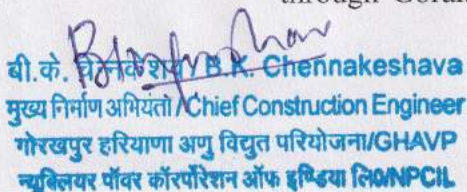 through Gorak
बी.के. चेन्नकेशव / B.K. Chennakeshava
मुख्य निर्माण अभियंता / Chief Construction Engineer
गोरखपुर हरियाणा अणु विद्युत परियोजना/GHAVP
न्यूक्लियर पॉवर कॉरपोरेशन ऑफ इण्डिया लि०/NPCIL